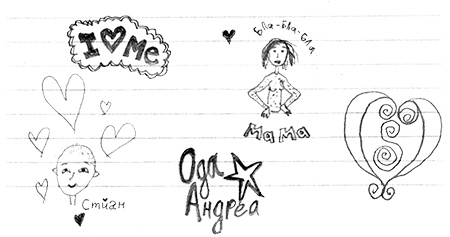 I ♥ Me
Бла-бла-бла
мама
Стиан
Ода
Андреа